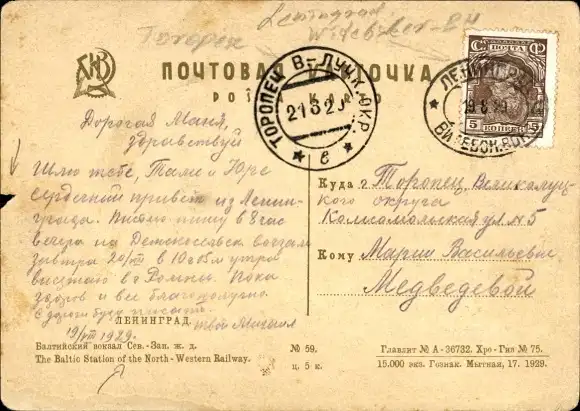 Leningrad
Toropez
Witebsker-BH
ПОЧТОВАЯ КАРТОЧКА
ТОРОПЕЦ В-ЛУЦ. ОКР.
21 8 29
в
С. ПОЧТА Ф.
5 КОПЕЕК 5
ЛЕНИНГРАД
19.8.29
Дорогая Маня,
здравствуй
Шлю тебе, Таме и Юре
сердечный привет из Ленин-
града. Письмо пишу в 8 час
вечера на Детскосельск. вокзале
завтра 20/VIII в 10 ч 05 м утра
выезжаю в г Ромны. Пока
здоров и все благополучно.
С дороги буду писать.
твой Михаил
19/VIII 1929.
Куда г. Торопец, Великолуц-
кого округа
Комсомольская ул. № 5
Кому Марии Васильевне
Медведевой
ЛЕНИНГРАД.
Балтийский вокзал Сев.-Зап. ж. д.
The Baltic Station of the North-Western Railway.
№ 59.
ц. 5 к.
Главлит № А - 36732. Хро - Гиз № 75.
15.000 экз. Гознак. Мытная, 17. 1929.